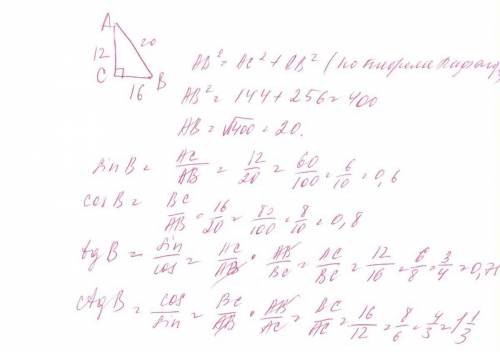 A
12
20
C
16
B
AB² = AC² + CB² (по теореме Пифагора
AB² = 144 + 256 = 400
AB = √400 = 20.
sin B = AC/AB = 12/20 = 60/100 = 6/10 = 0,6
cos B = BC/AB = 16/20 = 80/100 = 8/10 = 0,8
tg B = sin/cos = AC/AB · AB/BC = AC/BC = 12/16 = 6/8 = 3/4 = 0,7
ctg B = cos/sin = BC/AB · AB/AC = BC/AC = 16/12 = 8/6 = 4/3 = 1 1/3